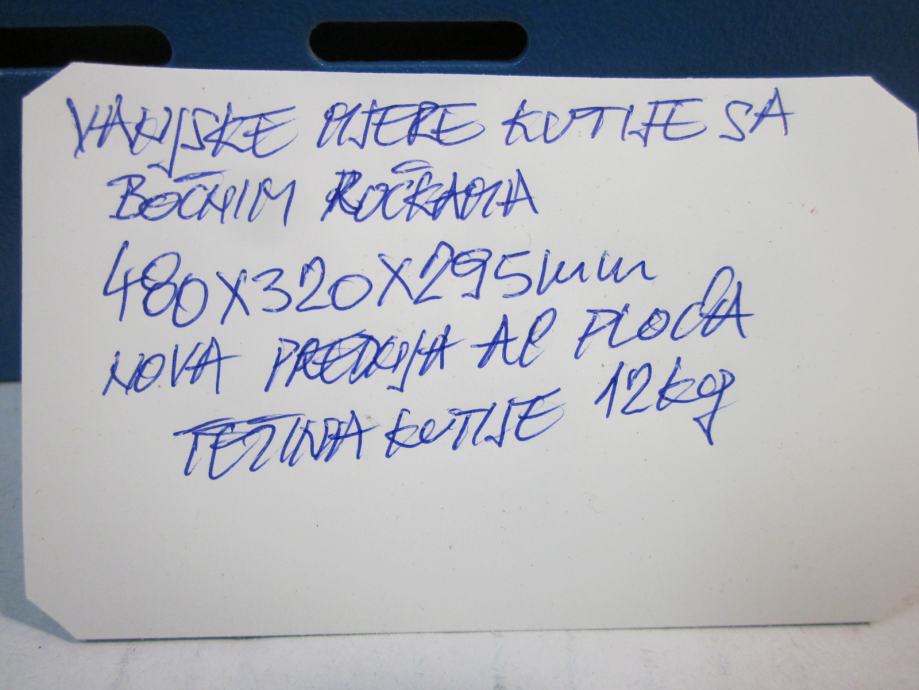 VANJSKE MJERE KUTIJE SA
BOČNIM RUČKAMA
480X320X295mm
NOVA PREDNJA Al PLOČA
TEŽINA KUTIJE 12kg